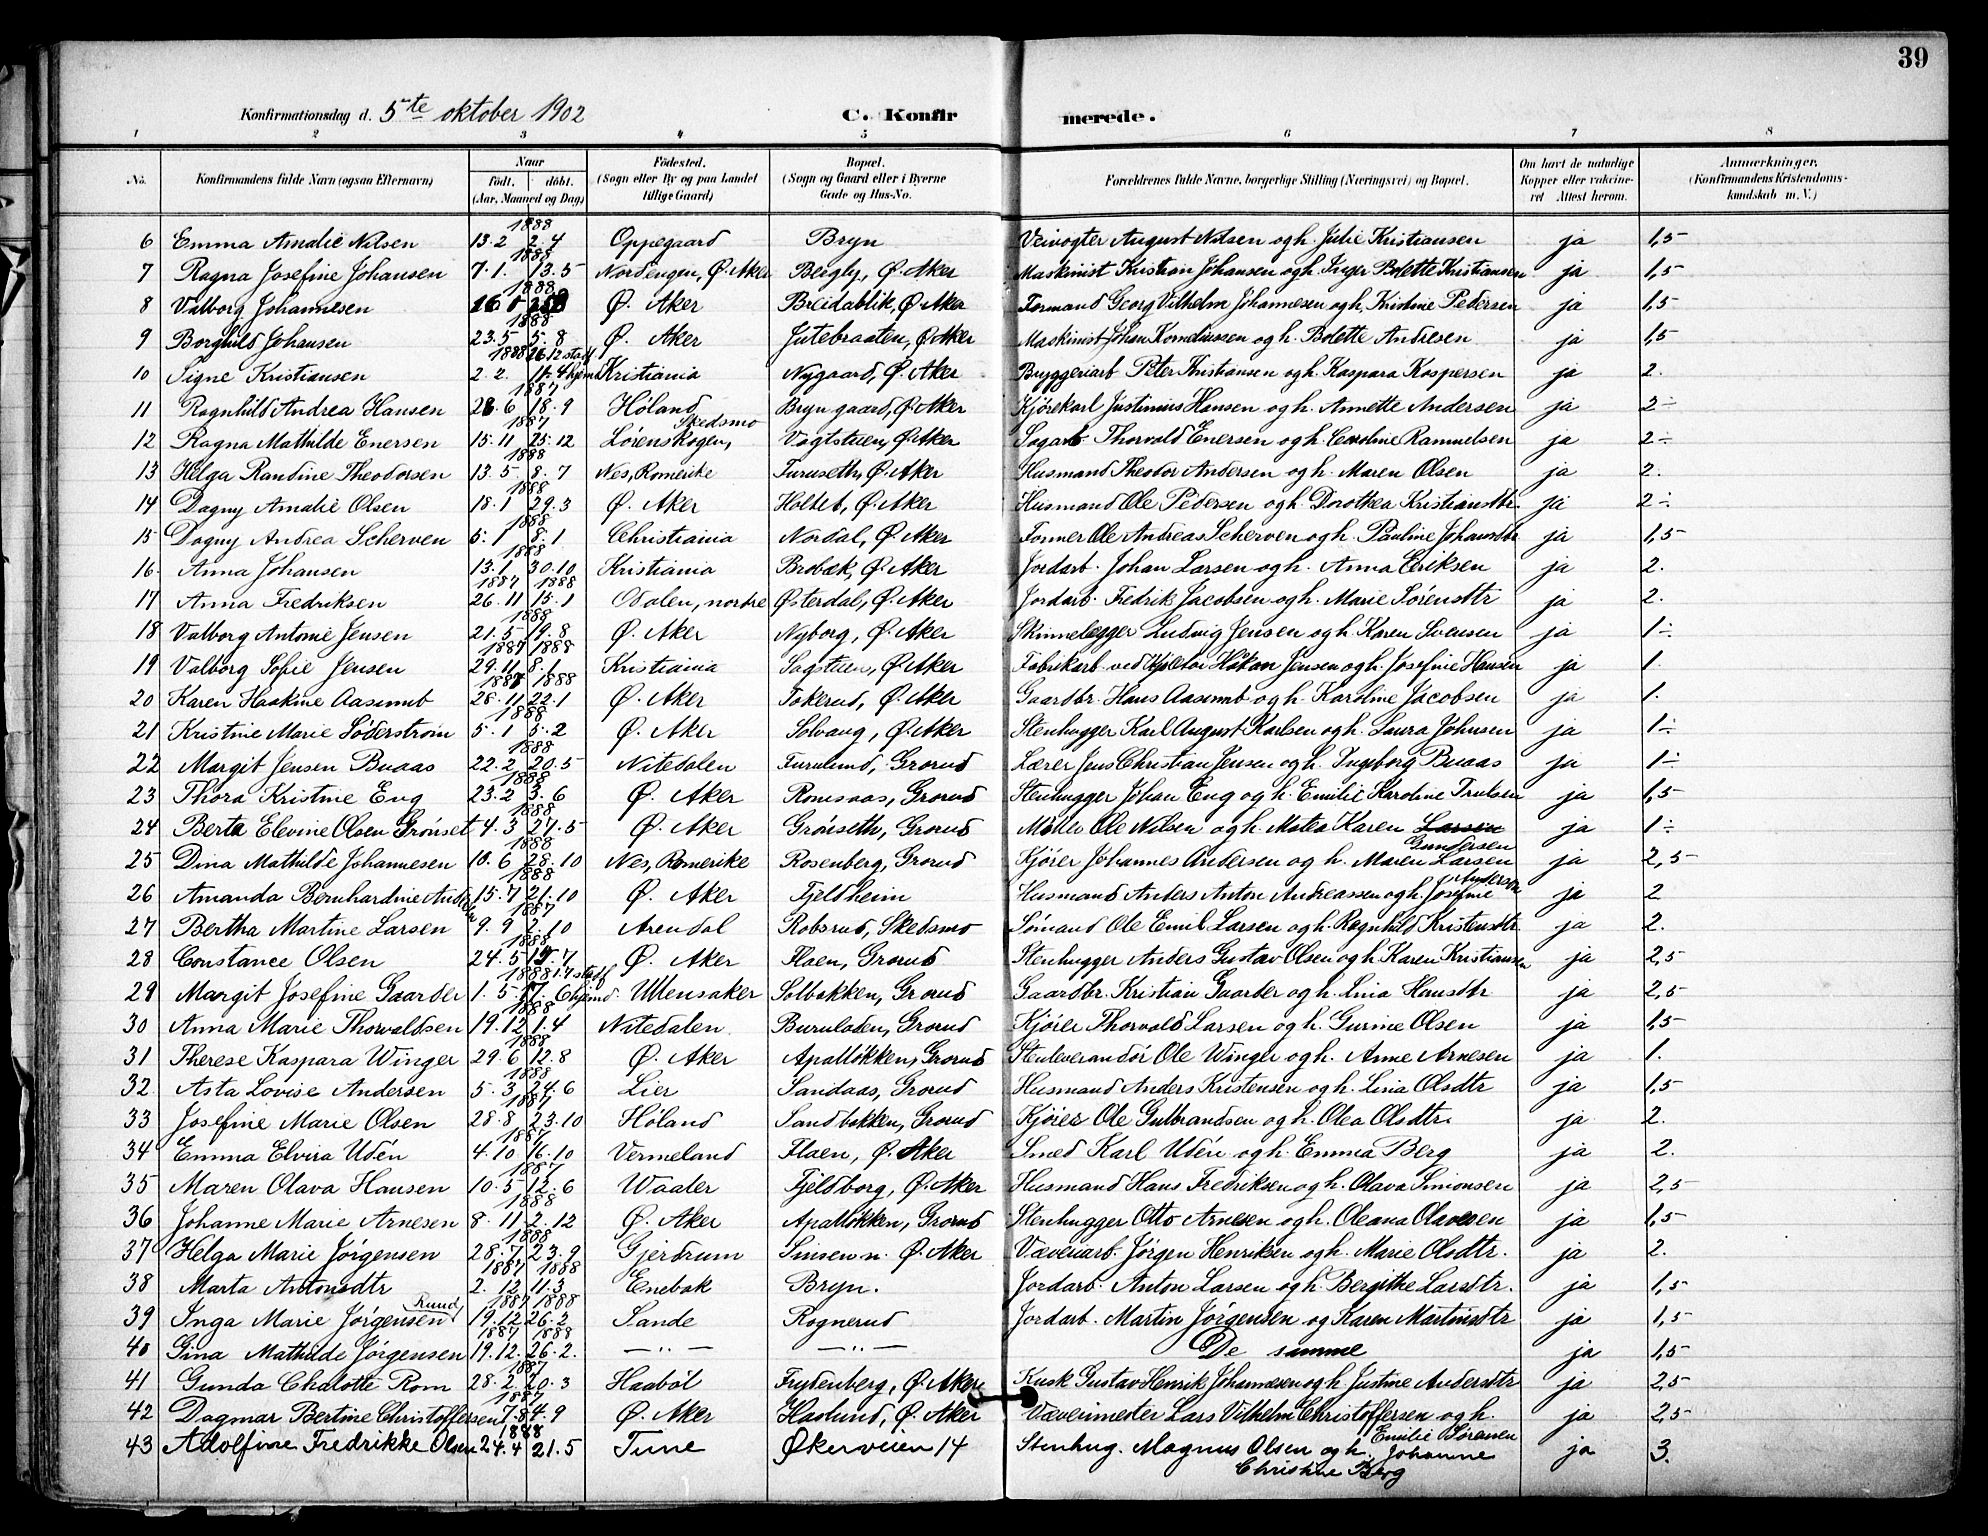 39
Konfirmationsdag d. 5te oktober 1902 C. Konfirmerede.
1 2 3 4 5 6 7 8
No. Konfirmandens fulde Navn (ogsaa Efternavn) Naar födt. döbt. (Aar, Maaned og Dag) Födested. (Sogn eller By og paa Landet tillige Gaard) Bopæl. (Sogn og Gaard eller i Byerne Gade og Hus-No. Forældrenes fulde Navne, borgerlige Stilling (Næringsvei) og Bopæl. Om havt de naturlige Kopper eller vaccineret Attest herom. Anmærkninger. (Konfirmandens Kristendomskundskab m. V.)
6 Emma Amalie Nilsen 1888 13.2 2.4 Oppegaard Bryn Veivogter August Nilsen og h. Julie Kristiansen ja 1,5
7 Ragna Josefine Johansen 1888 7.1. 13.5 Nordengen, Ø. Aker Bergly, Ø. Aker Maskinist Kristian Johansen og h. Inger Bolette Kristiansen ja 1,5
8 Valborg Johannesen 1888 Ø. Aker Breidablik, Ø. Aker Formand Georg Vilhelm Johannesen og h. Kristine Pedersen ja 1,5
9 Borghild Johansen 1888 23.5 5.8 Ø. Aker Jutebraaten, Ø. Aker Maskinist Johan Korneliussen og h. Bolette Andresen ja 1,5
10 Signe Kristiansen 1888 2.2. Kristiania Nygaard, Ø. Aker Bryggeriarb Peter Kristiansen og h. Kaspara Kaspersen ja 2.
11 Ragnhild Andrea Hansen 1887 28.6 18.9 Høland Bryn gaard, Ø. Aker Kjörekarl Justinius Hansen og h. Annette Andersen ja 2÷
12 Ragna Mathilde Enersen 1887 15.11 25.12 Lørenskogen, Skedsmo Vagtstuen, Ø. Aker Sagarb. Thorvald Enersen og h. Caroline Ramuelsen ja 2÷
13 Helga Randine Theodorsen 1888 13.5 8.7 Nes, Romerike Furuseth, Ø. Aker Husmand Theodor Andersen og h. Maren Olsen ja 2.
14 Dagny Amalie Olsen 1888 18.1 29.3 Ø. Aker Holtet, Ø. Aker Husmand Ole Pedersen og h. Dorothea Kristiansdtr. ja 2÷
15 Dagny Andrea Scherven 1888 5.1 8.1 Christiania Nordal, Ø. Aker Former Ole Andreas Scherven og h. Pauline Johansdtr ja 1,5
16. Anna Johansen 1888 13.1 30.10 Kristiania Brobæk, Ø. Aker Jordarb. Johan Larsen og h. Anna Eriksen ja 2.
17 Anna Fredriksen 1887 1888 26.11 15.1 Odalen, nordre Østerdal, Ø. Aker Jordarb. Fredrik Jacobsen og h. Marie Sörensdtr ja 2.
18 Valborg Antonie Jensen 1888 21.5 19.8 Ø. Aker Nyborg, Ø. Aker Skinnelægger Ludvig Jensen og h. Karen Svensen ja 1÷
19 Valborg Sofie Jensen 1887 1888 29.11 8.1 Kristiania Sagstuen, Ø. Aker Fabrikarb. ved Håkon Jensen og h. Josefine Hansen ja 1.
20 Karen Haakine Aasemb 1887 1888 28.11 22.1 Ø. Aker Tokerud, Ø. Aker Gaardbr. Hans Aasemb og h. Karoline Jacobsen ja 1.
21 Kristine Marie Söderström 1888 5.1 5.2 Ø. Aker Solvang, Ø. Aker Stenhugger Karl August Karlsen og h. Laura Johnsen ja 1÷
22 Margit Jensen Buaas 1888 22.2 20.5 Nitedalen Furulund, Grorud Lærer Jens Christian Jensen og h. Ingeborg Buaas ja 1÷
23 Thora Kristine Eng 1888 23.2 3.6 Ø. Aker Romsaas, Grorud Stenhugger Johan Eng og h. Emilie Karoline Trulsen ja 1,5
24 Berta Elevine Olsen Grönset 1888 4.3 27.5 Ø. Aker Grönseth, Grorud Möller Ole Nilsen og h. Matea Karen Larsen Gundersen ja 1÷
25 Dina Mathilde Johannesen 1888 10.6 28.10 Nes, Romerike Rosenberg, Grorud Kjörer Johannes Andersen og h. Maren Larsen ja 2,5
26 Amanda Bernhardine Andersen 1888 15.7 21.10 Ø. Aker Fjeldheim Husmand Anders Anton Andreassen og h. Josefine Andersen ja 2
27 Bertha Martine Larsen 1887 9.9 2.10 Arendal Robsrud, Skedsmo Sömand Ole Emil Larsen og h. Ragnhild Kristensdtr. ja 2.
28 Constance Olsen 1888 24.5 Ø. Aker Flaen, Grorud Stenhugger Anders Gustav Olsen og h. Karen Kristiansen ja 2,5
29 Margit Josefine Gaarder 1888 1.5. Ullensaker Solbakken, Grorud Gaardbr. Kristian Gaarder og h. Lina Hansdtr ja 2,5
30 Anna Marie Thorvaldsen 1888 19.12 1.4 Nitedalen Buruloden, Grorud Kjörer Thorvald Larsen og h. Gurine Olsen ja 1,5
31 Therese Kaspara Winger 1888 29.6 12.8 Ø. Aker Apallökken, Grorud Stenleverandör Ole Winger og h. Anne Arnesen ja 1.
32. Asta Lovise Andersen 1888 5.3 24.6 Lier Sandaas, Grorud Husmand Anders Kristensen og h. Lina Olsdtr ja 1,5
33 Josefine Marie Olsen 1887 28.8 23.10 Høland Sandbakken, Grorud Kjörer Ole Gulbrandsen og h. Olea Olsdtr. ja 2.
34 Emma Elvira Udén 1887 4.10 16.10 Vermeland Flaen, Ø. Aker Smed Karl Udén og h. Emma Berg ja 2.
35 Maren Olava Hansen 1887 10.5 12.6 Waaler Fjeldborg, Ø. Aker Husmand Hans Fredriksen og h. Olava Simonsen ja 2,5
36 Johanne Marie Arnesen 1888 8.11 2.12 Ø. Aker Apallökken, Grorud Stenhugger Otto Arnesen og h. Oleana Olavesen ja 1,5
37 Helga Marie Jörgensen 1888 28.7 23.9 Gjerdrum Sinsen n. Ø. Aker Væveriarb. Jörgen Henriksen og h. Marie Olsdtr. ja 2.
38 Marta Antonsdtr 1887 1888 2.12 11.3 Enebak Bryn. Jordarb. Anton Larsen og h. Bergithe Larsdtr. ja 1,5
39 Inga Marie Jörgensen Ruud 1887 1888 19.12 26.2 Sande Rognerud Jordarb. Martin Jörgensen og Karen Martinsdtr ja 1,5
40 Gina Mathilde Jörgensen 1887 1888 19.12. 26.2. —„— —„— De samme ja 1,5
41 Gunda Chalotte Rom 1887 28.2 20.3 Haaböl Frydenberg, Ø. Aker Kusk Gustav Henrik Johannesen og h. Justine Andersdtr ja 2,5
42 Dagmar Bertine Christoffersen 1887 7.8 4.9 Ø. Aker Haslund, Ø. Aker Vævermester Lars Vilhelm Christoffersen og h. Emilie Sörensen ja 2,5
43 Adolfine Fredrikke Olsen 1888 24.4 21.5 Tune Økernveien 14 Stenhug. Magnus Olsen og h. Johanne Christine Berg ja 3.